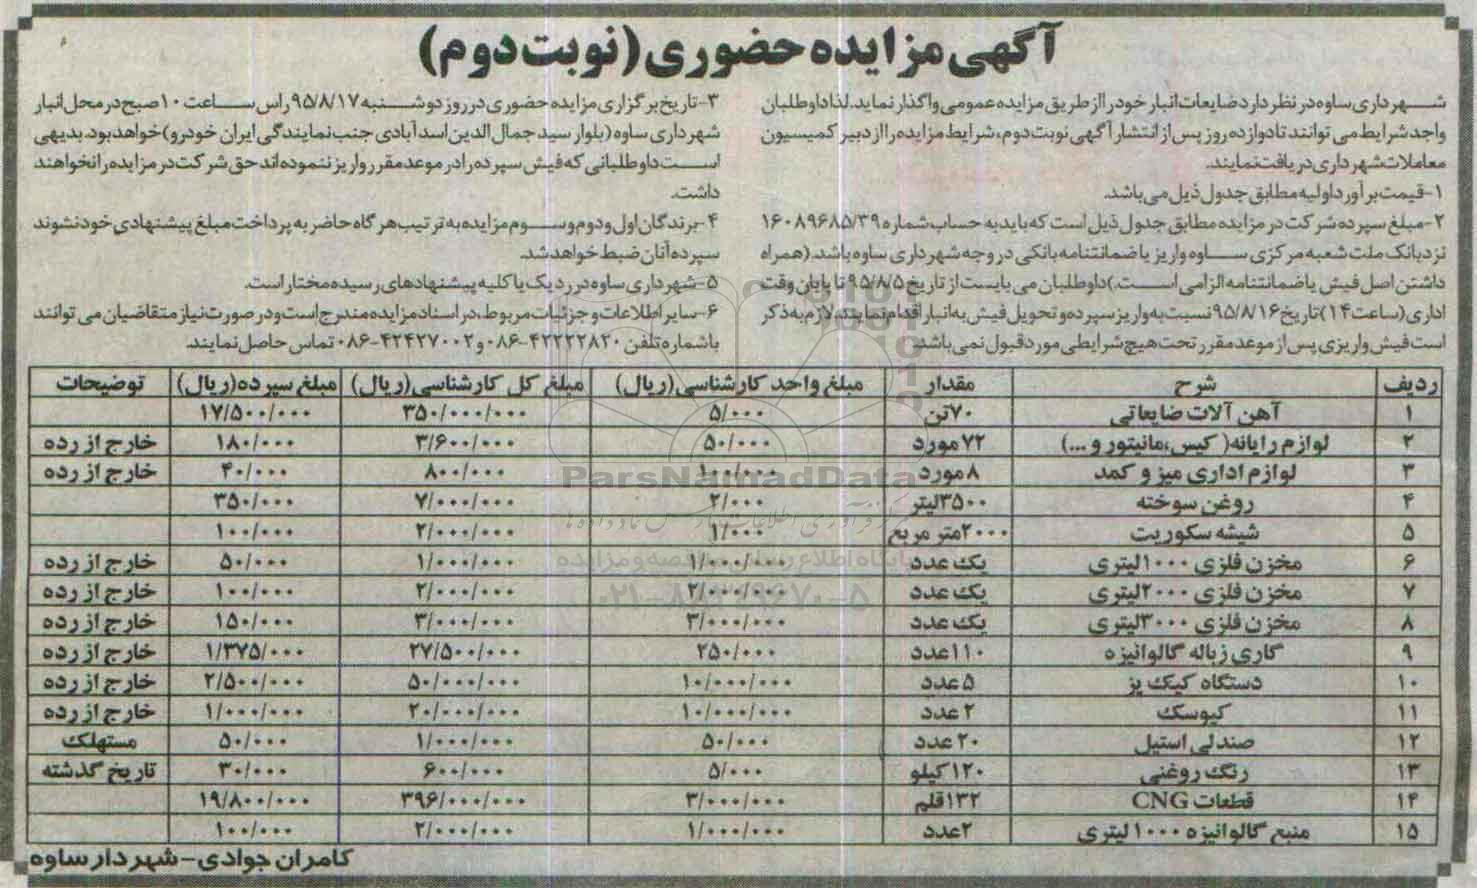 آگهی مزایده حضوری (نوبت دوم)
شهرداری ساوه در نظر دارد ضایعات انبار خود را از طریق مزایده عمومی واگذار نماید. لذا داوطلبان
واجد شرایط می توانند تا دوازده روز پس از انتشار آگهی نوبت دوم، شرایط مزایده را از دبیر کمیسیون
معاملات شهرداری دریافت نمایند.
۱-قیمت برآورد اولیه مطابق جدول ذیل می باشد.
۲-مبلغ سپرده شرکت در مزایده مطابق جدول ذیل است که باید به حساب شماره ۱۶۰۸۹۶۸۵/۳۹
نزد بانک ملت شعبه مرکزی ساوه واریز یا ضمانتنامه بانکی در وجه شهرداری ساوه باشد. (همراه
داشتن اصل فیش یا ضمانتنامه الزامی است.) داوطلبان می بایست از تاریخ ۹۵/۸/۵ تا پایان وقت
اداری (ساعت ۱۴) تاریخ ۹۵/۸/۱۶ نسبت به واریز سپرده و تحویل فیش به انبار اقدام نمایند، لازم به ذکر
است فیش واریزی پس از موعد مقرر تحت هیچ شرایطی مورد قبول نمی باشد.
۳-تاریخ برگزاری مزایده حضوری در روز دوشنبه ۹۵/۸/۱۷ راس ساعت ۱۰ صبح در محل انبار
شهرداری ساوه (بلوار سید جمال الدین اسدآبادی جنب نمایندگی ایران خودرو) خواهد بود. بدیهی
است داوطلبانی که فیش سپرده را در موعد مقرر واریز ننموده اند حق شرکت در مزایده را نخواهند
داشت.
۴-برندگان اول و دوم و سوم مزایده به ترتیب هرگاه حاضر به پرداخت مبلغ پیشنهادی خود نشوند
سپرده آنان ضبط خواهد شد.
۵-شهرداری ساوه در رد یک یا کلیه پیشنهادهای رسیده مختار است.
۶-سایر اطلاعات و جزئیات مربوط، در اسناد مزایده مندرج است و در صورت نیاز متقاضیان می توانند
با شماره تلفن ۴۲۲۲۲۸۲۰-۰۸۶ و ۴۲۴۲۷۰۰۲-۰۸۶ تماس حاصل نمایند.
ردیف شرح مقدار مبلغ واحد کارشناسی (ریال) مبلغ کل کارشناسی (ریال) مبلغ سپرده (ریال) توضیحات
۱ آهن آلات ضایعاتی ۷۰تن ۵/۰۰۰ ۳۵۰/۰۰۰/۰۰۰ ۱۷/۵۰۰/۰۰۰
۲ لوازم رایانه( کیس،مانیتور و ...) ۷۲مورد ۵۰/۰۰۰ ۳/۶۰۰/۰۰۰ ۱۸۰/۰۰۰ خارج از رده
۳ لوازم اداری میز و کمد ۸مورد ۱۰۰/۰۰۰ ۸۰۰/۰۰۰ ۴۰/۰۰۰ خارج از رده
۴ روغن سوخته ۳۵۰۰لیتر ۲/۰۰۰ ۷/۰۰۰/۰۰۰ ۳۵۰/۰۰۰
۵ شیشه سکوریت ۲۰۰۰متر مربع ۱/۰۰۰ ۲/۰۰۰/۰۰۰ ۱۰۰/۰۰۰
۶ مخزن فلزی ۱۰۰۰لیتری یک عدد ۱/۰۰۰/۰۰۰ ۱/۰۰۰/۰۰۰ ۵۰/۰۰۰ خارج از رده
۷ مخزن فلزی ۲۰۰۰لیتری یک عدد ۲/۰۰۰/۰۰۰ ۲/۰۰۰/۰۰۰ ۱۰۰/۰۰۰ خارج از رده
۸ مخزن فلزی ۳۰۰۰لیتری یک عدد ۳/۰۰۰/۰۰۰ ۳/۰۰۰/۰۰۰ ۱۵۰/۰۰۰ خارج از رده
۹ گاری زباله گالوانیزه ۱۱۰عدد ۲۵۰/۰۰۰ ۲۷/۵۰۰/۰۰۰ ۱/۳۷۵/۰۰۰ خارج از رده
۱۰ دستگاه کیک پز ۵عدد ۱۰/۰۰۰/۰۰۰ ۵۰/۰۰۰/۰۰۰ ۲/۵۰۰/۰۰۰ خارج از رده
۱۱ کیوسک ۲عدد ۱۰/۰۰۰/۰۰۰ ۲۰/۰۰۰/۰۰۰ ۱/۰۰۰/۰۰۰ خارج از رده
۱۲ صندلی استیل ۲۰عدد ۵۰/۰۰۰ ۱/۰۰۰/۰۰۰ ۵۰/۰۰۰ مستهلک
۱۳ رنگ روغنی ۱۲۰کیلو ۵/۰۰۰ ۶۰۰/۰۰۰ ۳۰/۰۰۰ تاریخ گذشته
۱۴ قطعات CNG ۱۳۲قلم ۳/۰۰۰/۰۰۰ ۳۹۶/۰۰۰/۰۰۰ ۱۹/۸۰۰/۰۰۰
۱۵ منبع گالوانیزه ۱۰۰۰ لیتری ۲عدد ۱/۰۰۰/۰۰۰ ۲/۰۰۰/۰۰۰ ۱۰۰/۰۰۰
کامران جوادی-شهردار ساوه
ParsNamadData